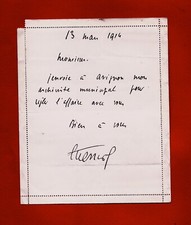 13 mars 1914
Monsieur.
j'envoie à Avignon mon
architecte municipal pour
régler l'affaire avec vous
Bien à vous